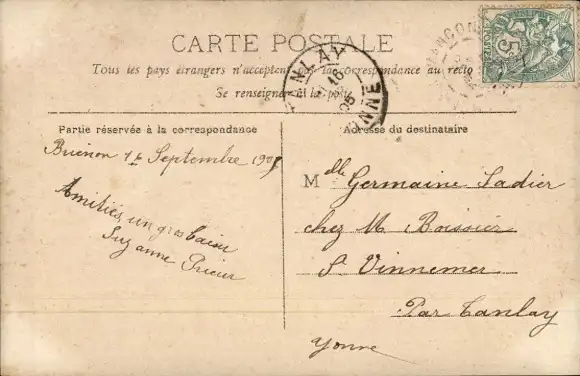 CARTE POSTALE
Tous les pays étrangers n'acceptent pas la correspondance au recto
Se renseigner à la poste
Partie réservée à la correspondance
Adresse du destinataire
Brienon 1er Septembre 1905
Amitiés un gros baiser
Suzanne Prieur
Mdlle Germaine Sadier
chez M. Boissier
St. Vinnemer
Par Tanlay
Yonne
TANLAY
16
05
YONNE
5